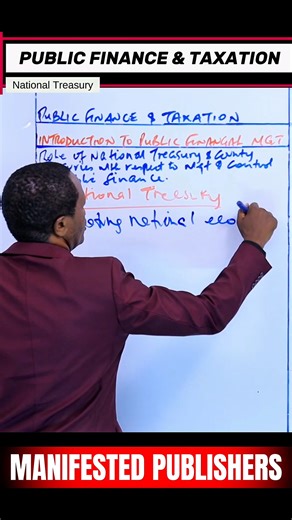 PUBLIC FINANCE & TAXATION
National Treasury
PUBLIC FINANCE & TAXATION
INTRODUCTION TO PUBLIC FINANCIAL MGT
Role of National Treasury & County
with respect to Mgt & Control
finance.
Treasury
national eco
MANIFESTED PUBLISHERS